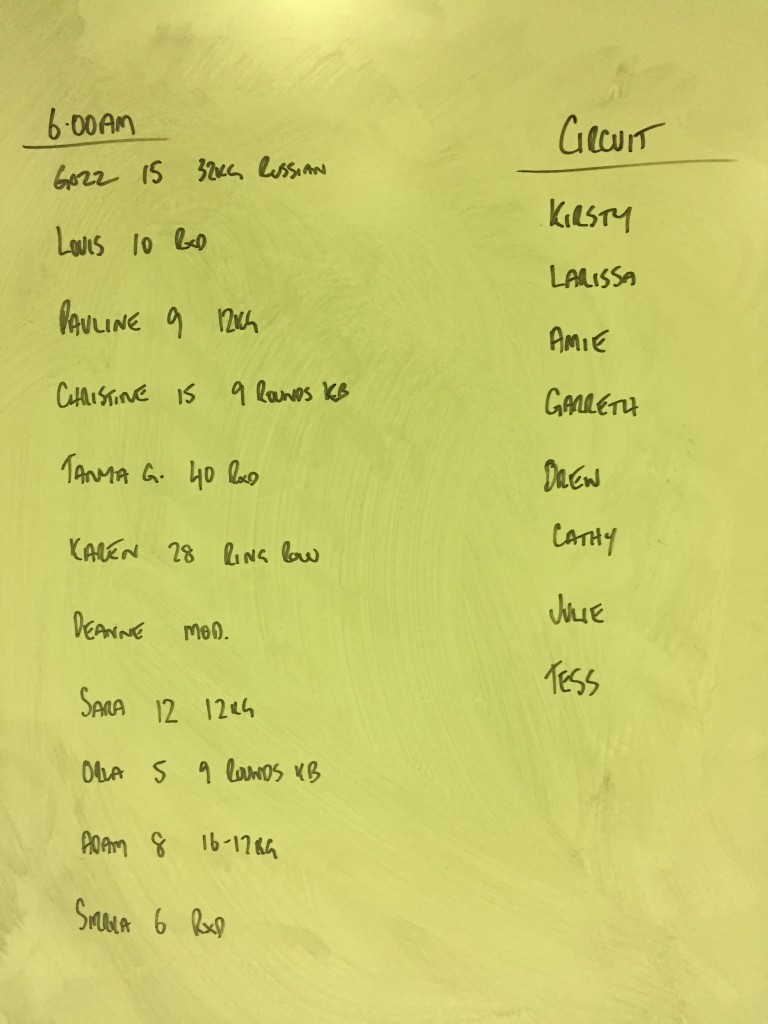 6.00AM
GAZZ 15 32KG RUSSIAN
LOUIS 10 RXD
PAULINE 9 12KG
CHRISTINE 15 9 ROUNDS KB
TANYA G. 40 RXD
KAREN 28 RING ROW
DEANNE MOD.
SARA 12 12KG
ORLA 5 9 ROUNDS KB
ADAM 8 16-12KG
6 RXD
CIRCUIT
KIRSTY
LARISSA
AMIE
GARRETH
DREW
CATHY
JULIE
TESS